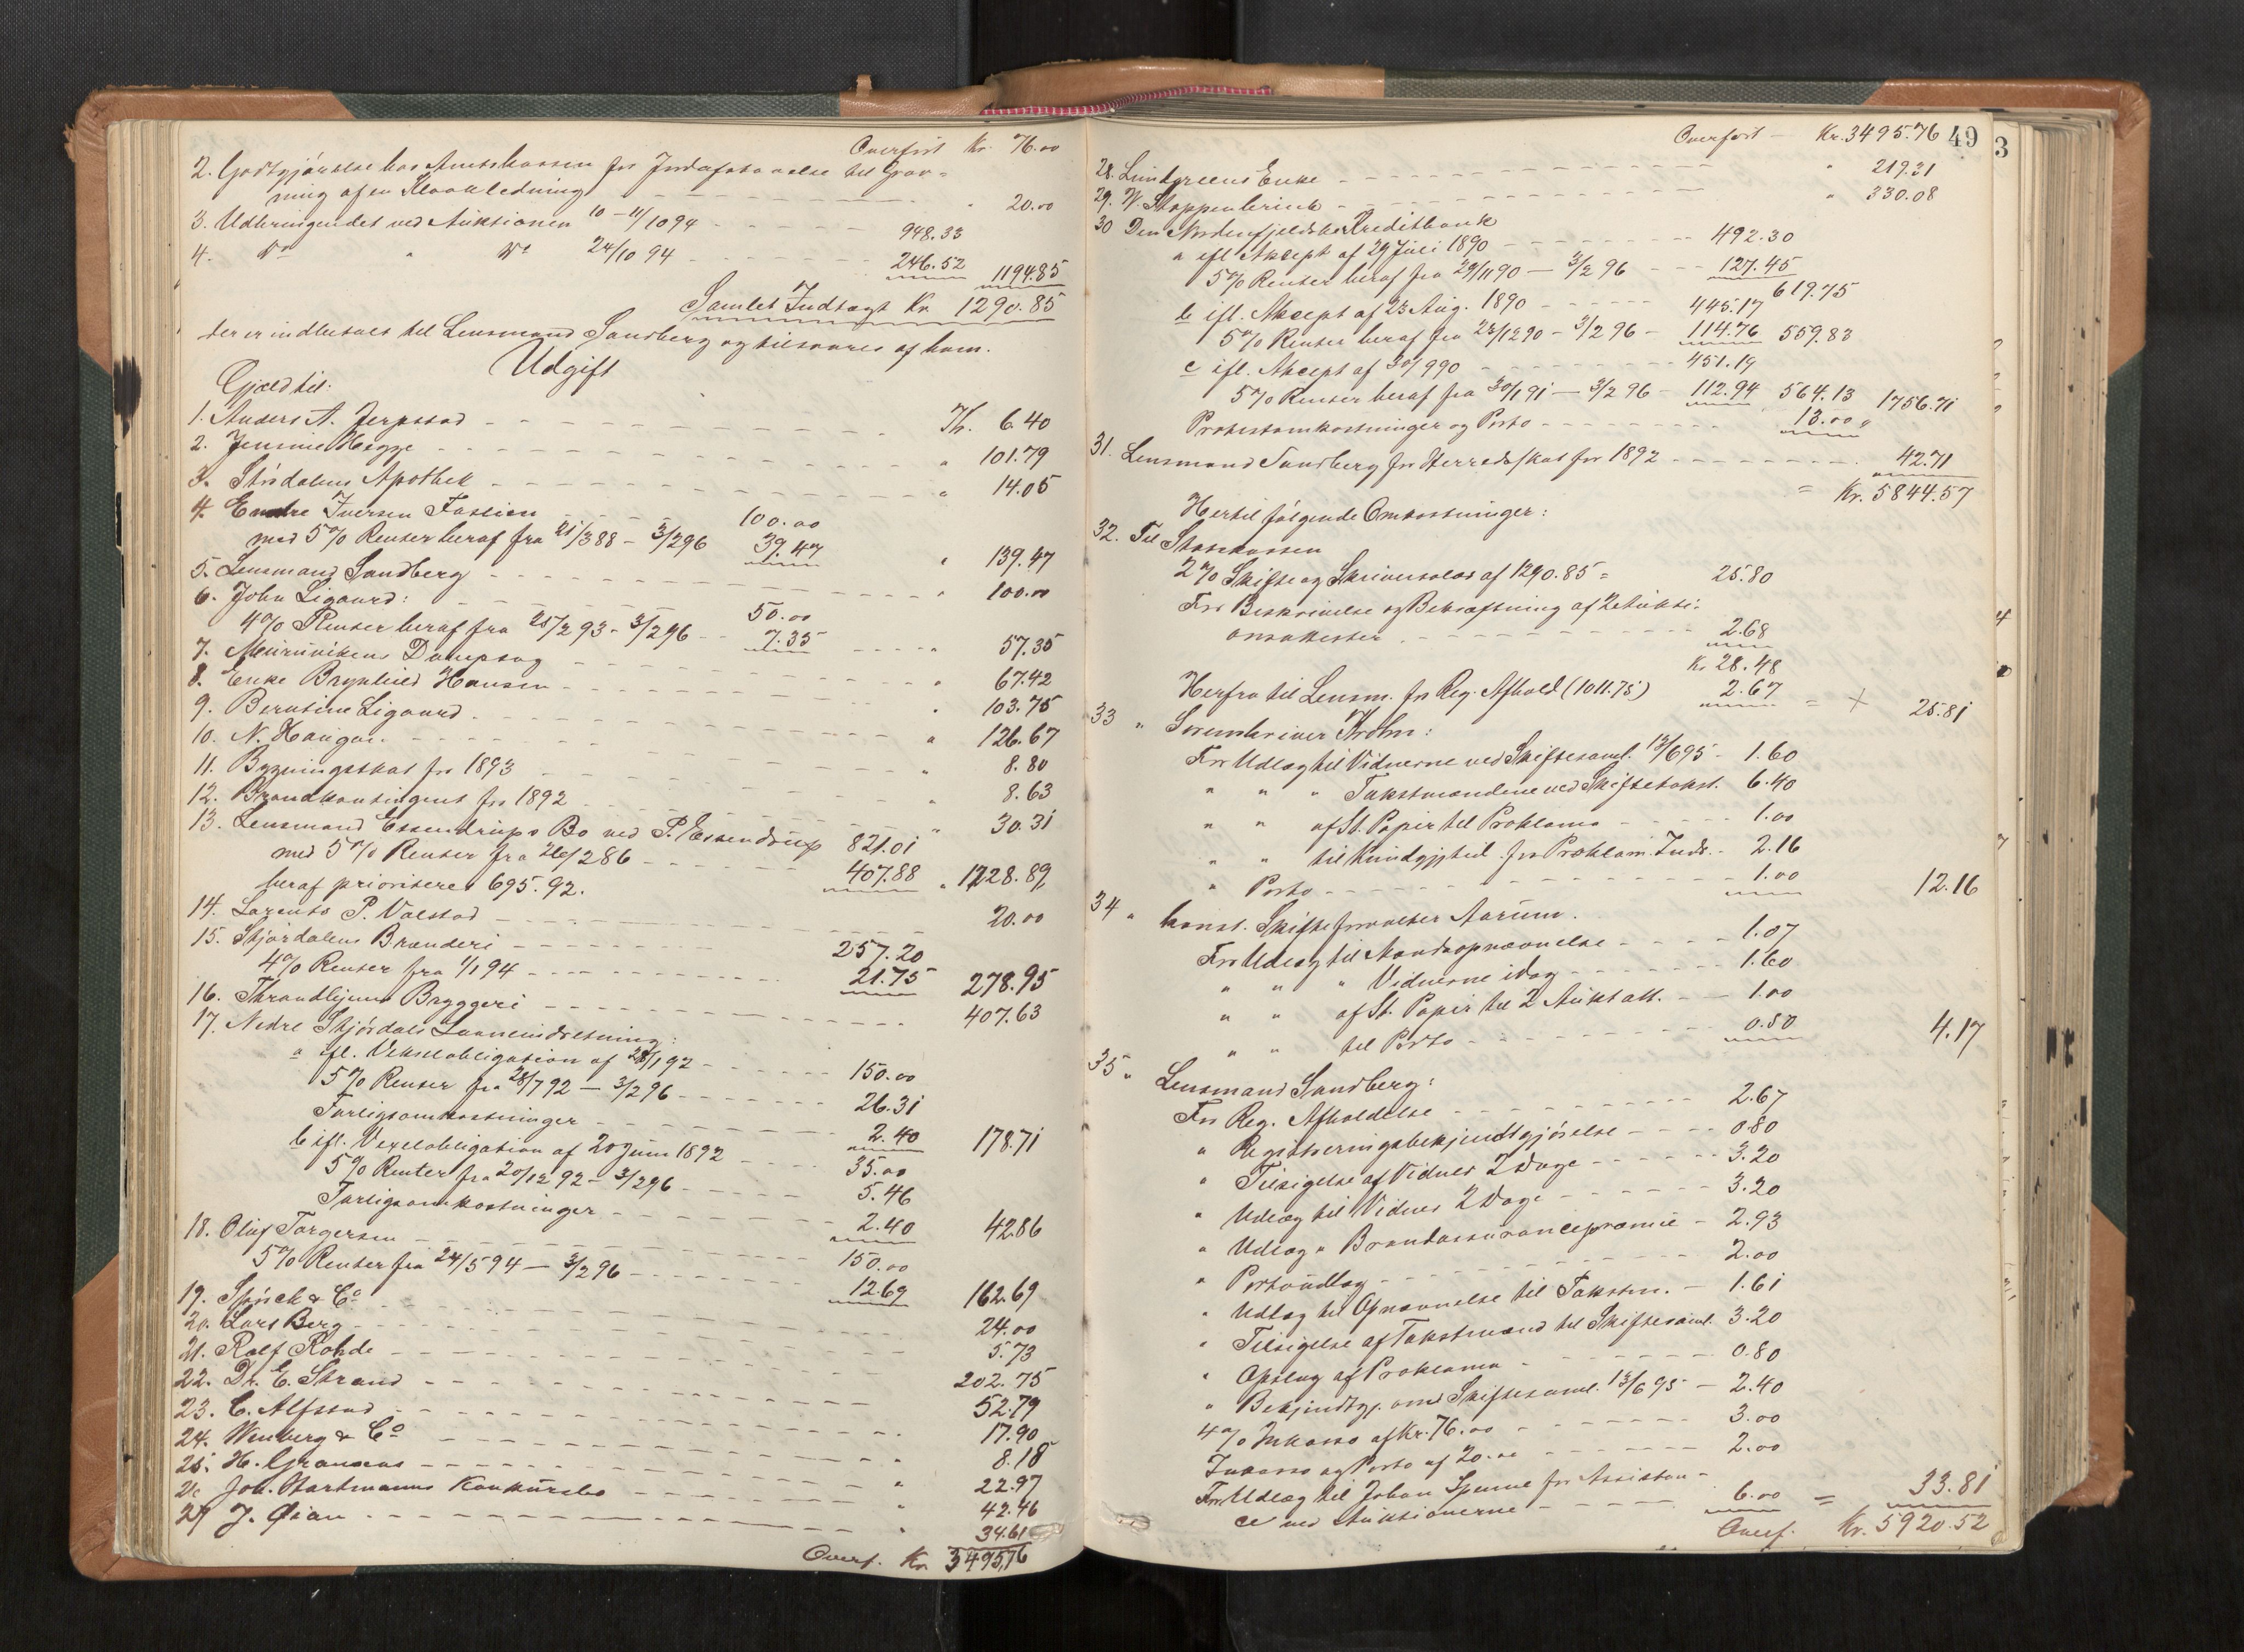 Overført Kr. 76.00
2. Godtgjørelse hos Amtskassen for Jordafstaaelse til Grav-
ning af en Kloakledning - - - " 20.00
3. Udbringendet ved Auktionen 10-11/10 94 - - - 948.33
4. Do " Do 24/10 94 - - - 246.52 1194.85
Samlet Indtægt Kr. 1290.85
der er indbetalt til Lensmand Sandberg og tilsvares af ham.
Udgift
Gjæld til:
1. Anders A. Jerpstad - - - Kr. 6.40
2. Jennie Hegge - - - " 101.79
3. Stjørdalens Apothek - - - " 14.05
4. Iversen - - - 100.00
med 5% Renter heraf fra 25/3 88 - 3/2 96 39.47 " 139.47
5. Lensmand Sandberg - - - " 100.00
6. John Ligaard: - - - 50.00
4% Renter heraf fra 25/2 93 - 3/2 96 - - 7.35 - - - " 57.35
7. Muruvikens Dampsag - - - 67.42
8. Enke Brynhild Hansen - - - " 103.75
9. Berntine Ligaard - - - " 126.67
10. N. Haugan - - - " 8.80
11. Bygningsskat for 1893 - - - " 8.63
12. Brandkontingent for 1892 - - - " 30.31
13. Lensmand Essendrups Bo ved P. Essendrup 821.01
med 5% Renter fra 26/2 86 - - - 407.88 " 1228.89
heraf prioriteret 695.92.
14. Lorents P. Valstad - - - 20.00
15. Stjørdalens Brænderi - - - 257.20
4% Renter fra 1/1 94 - - - 21.75 278.95
16. Throndhjems Bryggeri - - - 407.63
17. Nedre Stjørdals Laaneindretning:
a ifl. Vekselobligation af 28/1 92 - - - 150.00
5% Renter fra 28/7 92 - 3/2 96 - - - 26.31
Forligsomkostninger - - - 2.40 178.71
b ifl. Vexelobligation af 20 Juni 1892 - - - 35.00
5% Renter fra 20/12 92 - 3/2 96 - - - 5.46
Forligsomkostninger - - - 2.40 42.86
18. Oluf Torgersen - - - 150.00
5% Renter fra 24/5 94 - 3/2 96 - - - 12.69 162.69
19. Spörck & Co - - - 24.00
20. Lars Berg - - - 5.73
21. Rolf Rohde - - - 202.75
22. Dr. E. Strand - - - 52.79
23. C. Alfstad - - - 17.90
24. Wenberg & Co - - - 8.18
25. H. - - - " 22.97
26 Joh. Hartmanns Konkursbo - - - " 42.46
27 J. Øian - - - " 34.61
Overf. Kr. 3495,76
49
3
Overført - Kr. 3495.76
28. Lundgreens Enke - - - " 219.31
29. W. Stoppenbrinck - - - " 330.08
30 Den Nordenfjeldske Kreditbank
a ifl Aksept af 29 Juli 1890 - - - 492.30
5% Renter heraf fra 29/11 90 - 3/2 96 - - - 127.45 619.75
b ifl. Aksept af 23 Aug. 1890 - - - 445.17
5% Renter heraf fra 23/12 90 - 3/2 96 - 114.76 559.83
c ifl. Aksept af 30/9 90 - - - 451.19
5% Renter heraf fra 30/1 91 - 3/2 96 - 112.94 564.13
Protestomkostninger og Porto - - - 13.00 1756.71
31. Lensmand Sandberg for Herredsskat for 1892 - - - 42.71
= Kr. 5844.57
Hertil følgende Omkostninger:
32. Til Statskassen
2% Skifte og Skriversalær af 1290.85 = 25.80
For Beskrivelse og Bekræftning af 2 Aukti-
onsakester - - - 2.68
Kr 28.48
Herfra til Lensm. for Reg. Afhold (1011.75) 2.67 = + 25.81
33 " Sorenskriver Krohn:
For Udlæg til Vidnerne ved Skiftesaml. 13/6 95 - 1.60
" " " Takstmændene ved Skiftetakst. 6.40
" " af St. Papir til Proklama - - - 1.00
" " til Kundgj.tid. for Proklam. Inds. - 2.16
" Porto - - - 1.00 12.16
34 " konst. Skifteforvalter Aarum.
For Udlæg til Mandsopnævnelse - - - 1.07
" " " Vidnerne idag - - - 1.60
" " af St. Papir til 2 Aukt att. - - 1.00
" " til Porto - - - 0.50 4.17
35 " Lensmand Sandberg:
For Reg. Afholdelse - - - 2.67
" Registreringsbekjendtgjørelse - - - 0.80
" Tilsigelse af Vidner 2 Dage - - - 3.20
" Udlæg til Vidner 2 Dage - - - 3.20
" Udlæg " Brandassurancepræmie - 2.93
" Portoudlæg - - - 2.00
" Udlæg til Opnævnelse til Takstm. - 1.61
" Tilsigelse af Takstmænd til Skiftesaml. 3.20
" Opslag af Proklama - - - 0.80
" Bekjendtgj. om Skiftesaml. 13/6 95 - 2.40
4% Inkasso af Kr. 76.00 - - - 3.00
Inkasso og Porto af 20.00 - - - 2.00
For Udlæg til Johan for Assistan-
ce ved Auktionerne - - - 6.00 = 33.81
Overf. Kr. 5920.52